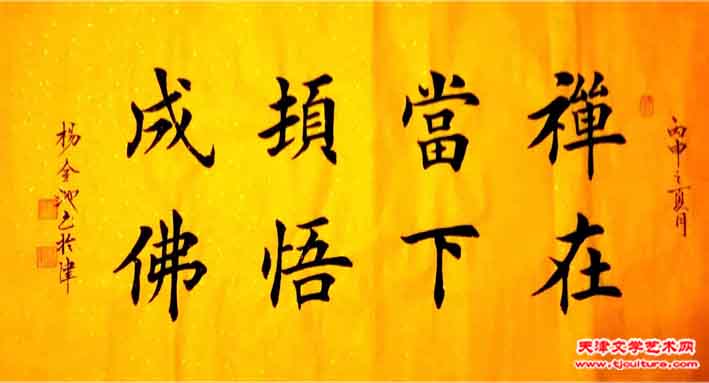 丙申之夏月
禪在
當下
頓悟
成佛
楊金池书於津
天津文学艺术网
www.tjculture.com